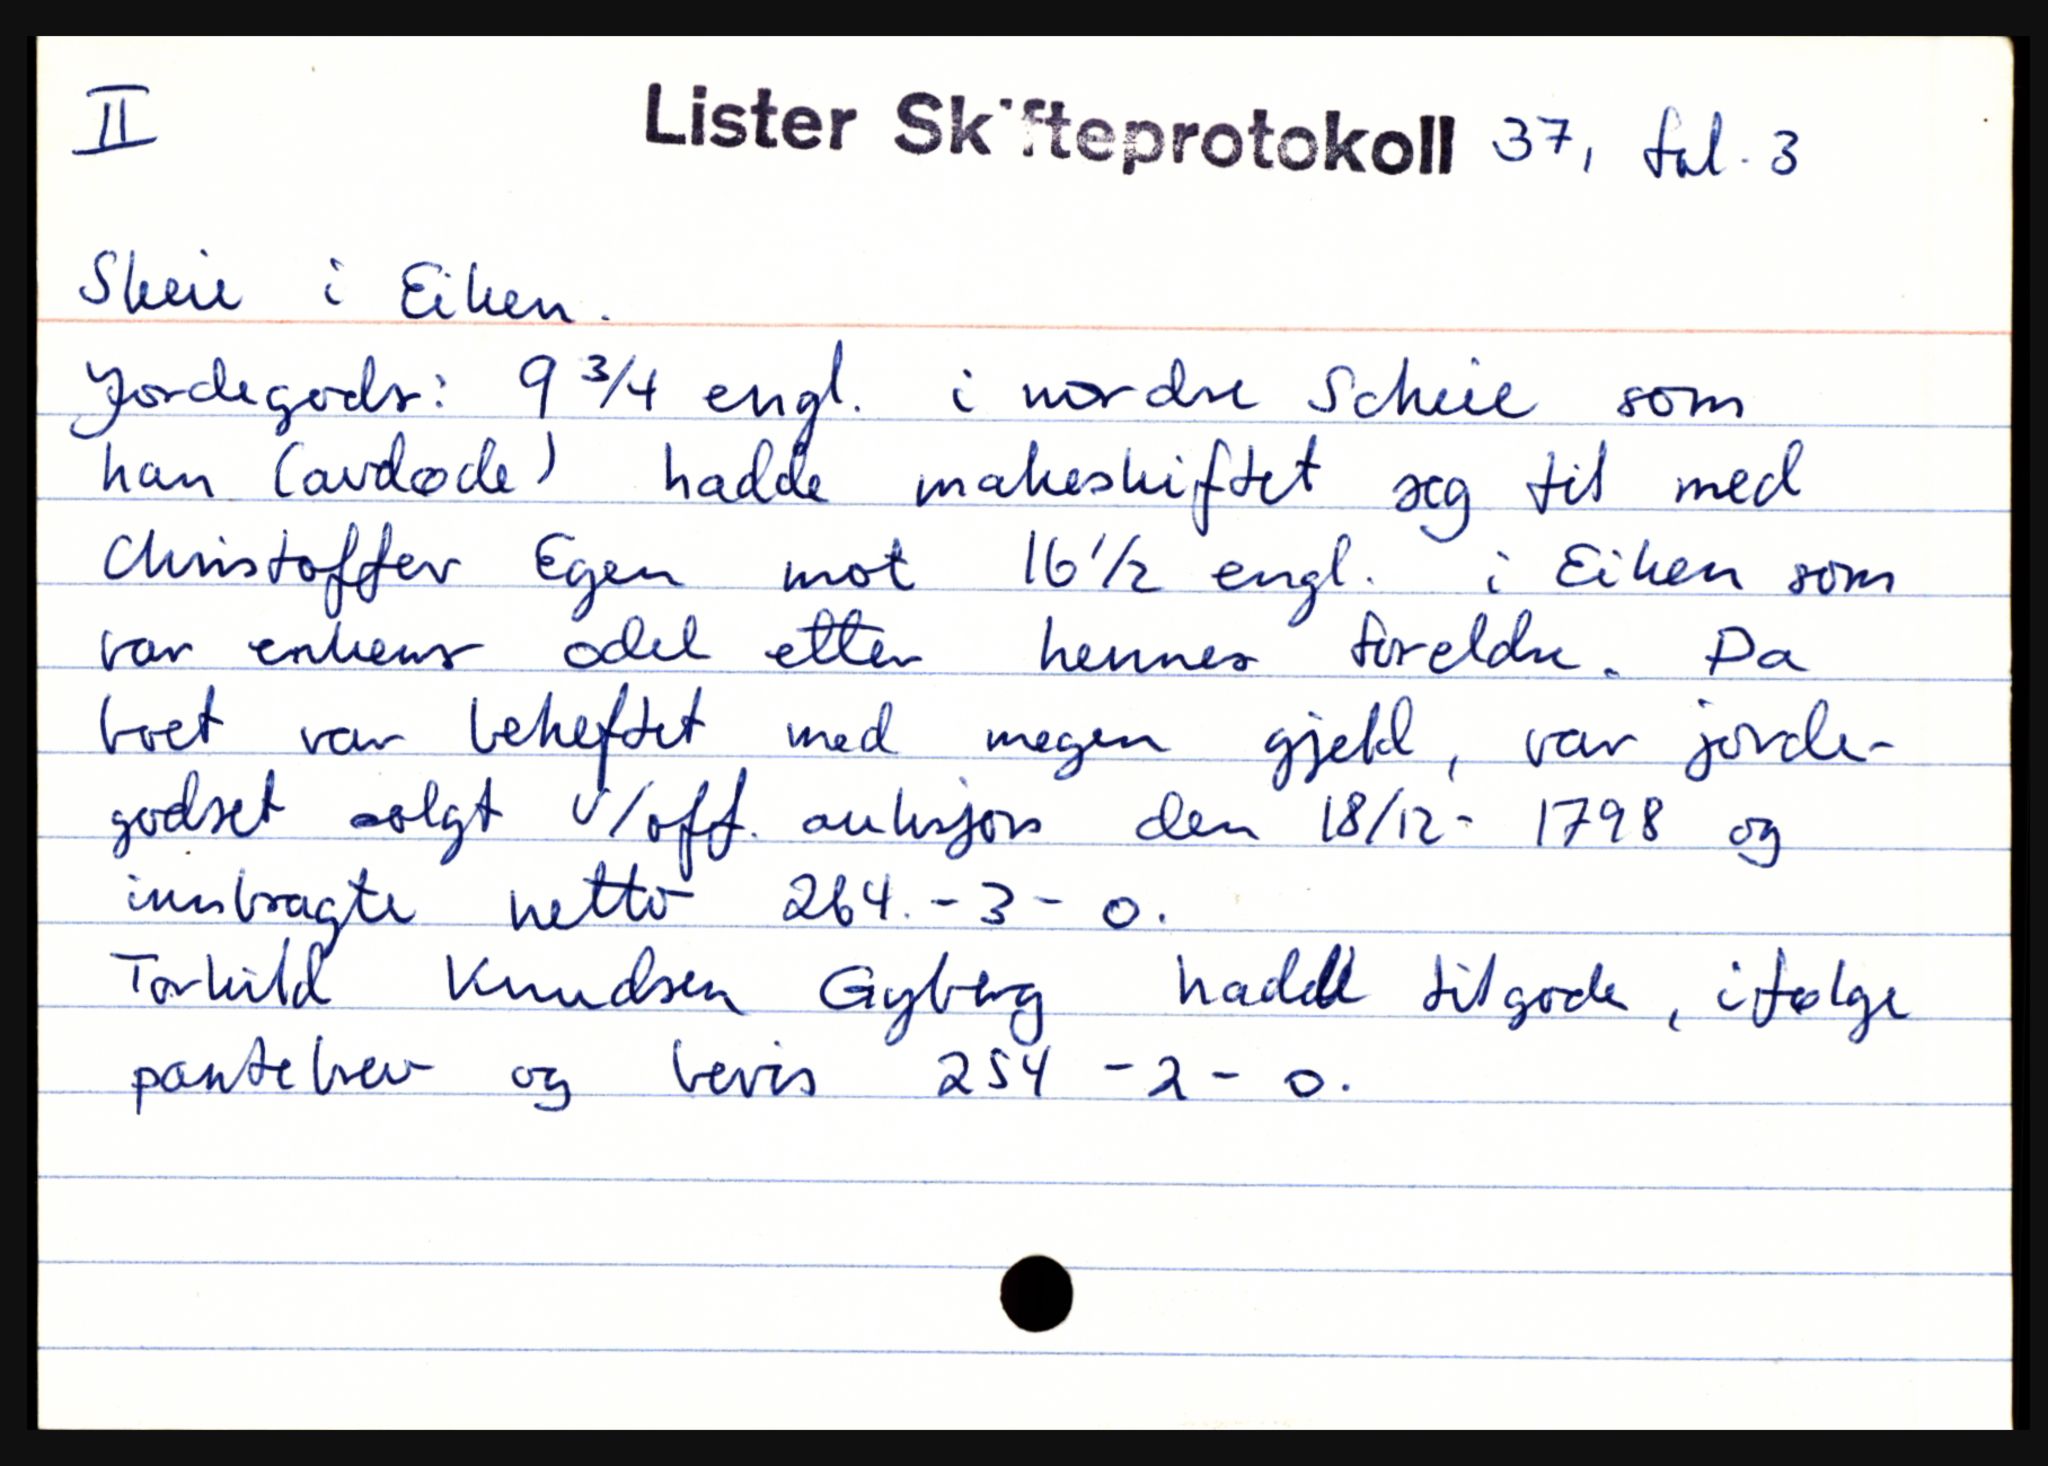 II Lister Skifteprotokoll 37, fol. 3
Skeie i Eiken.
Jordegods: 9 3/4 engl. i nordre Scheie som
han (avdøde) hadde makeskiftet seg til med
Christoffer Egen mot 16 1/2 engl. i Eiken som
var enkens odel etter hennes foreldre. Da
boet var beheftet med megen gjeld, var jorde-
godset solgt v/off. auksjon den 18/12- 1798 og
innbragte netto 264.-3-0.
Torkild Knudsen Gyberg hadde tilgode, ifølge
pantebrev og bevis 254 -2-0.